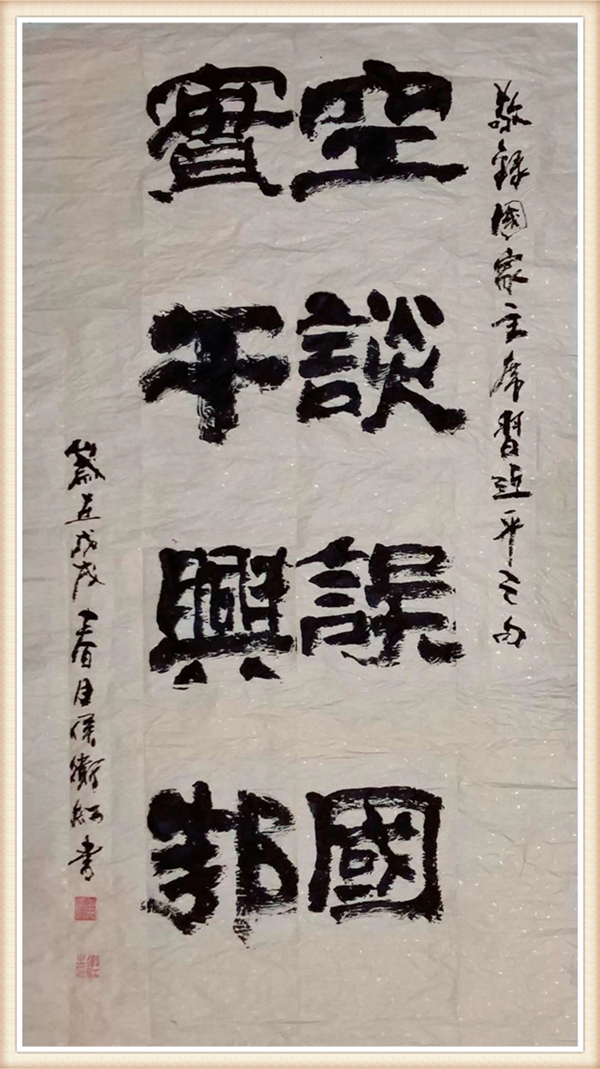 敬錄國家主席習近平之句
空談誤國
實干興邦
歲在戊戌春月侯衛紅書